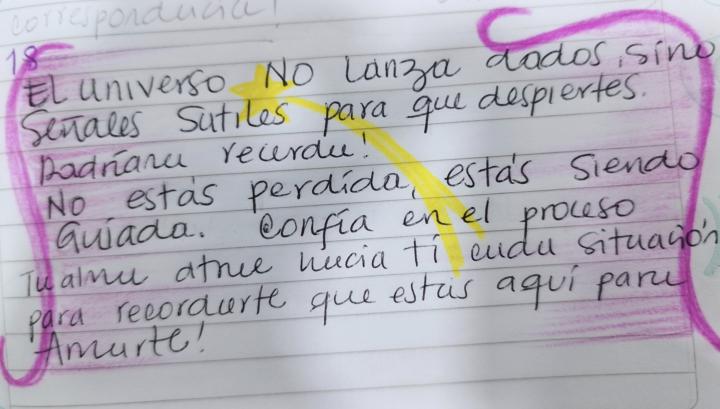 correspondencia!
18
El universo NO lanza dados, sino
señales sutiles para que despiertes.
recuerda!
No estás perdida, estás siendo
Guiada. Confía en el proceso
Tu alma atrae hacia ti cada situación
para recordarte que estás aquí para
Amarte!